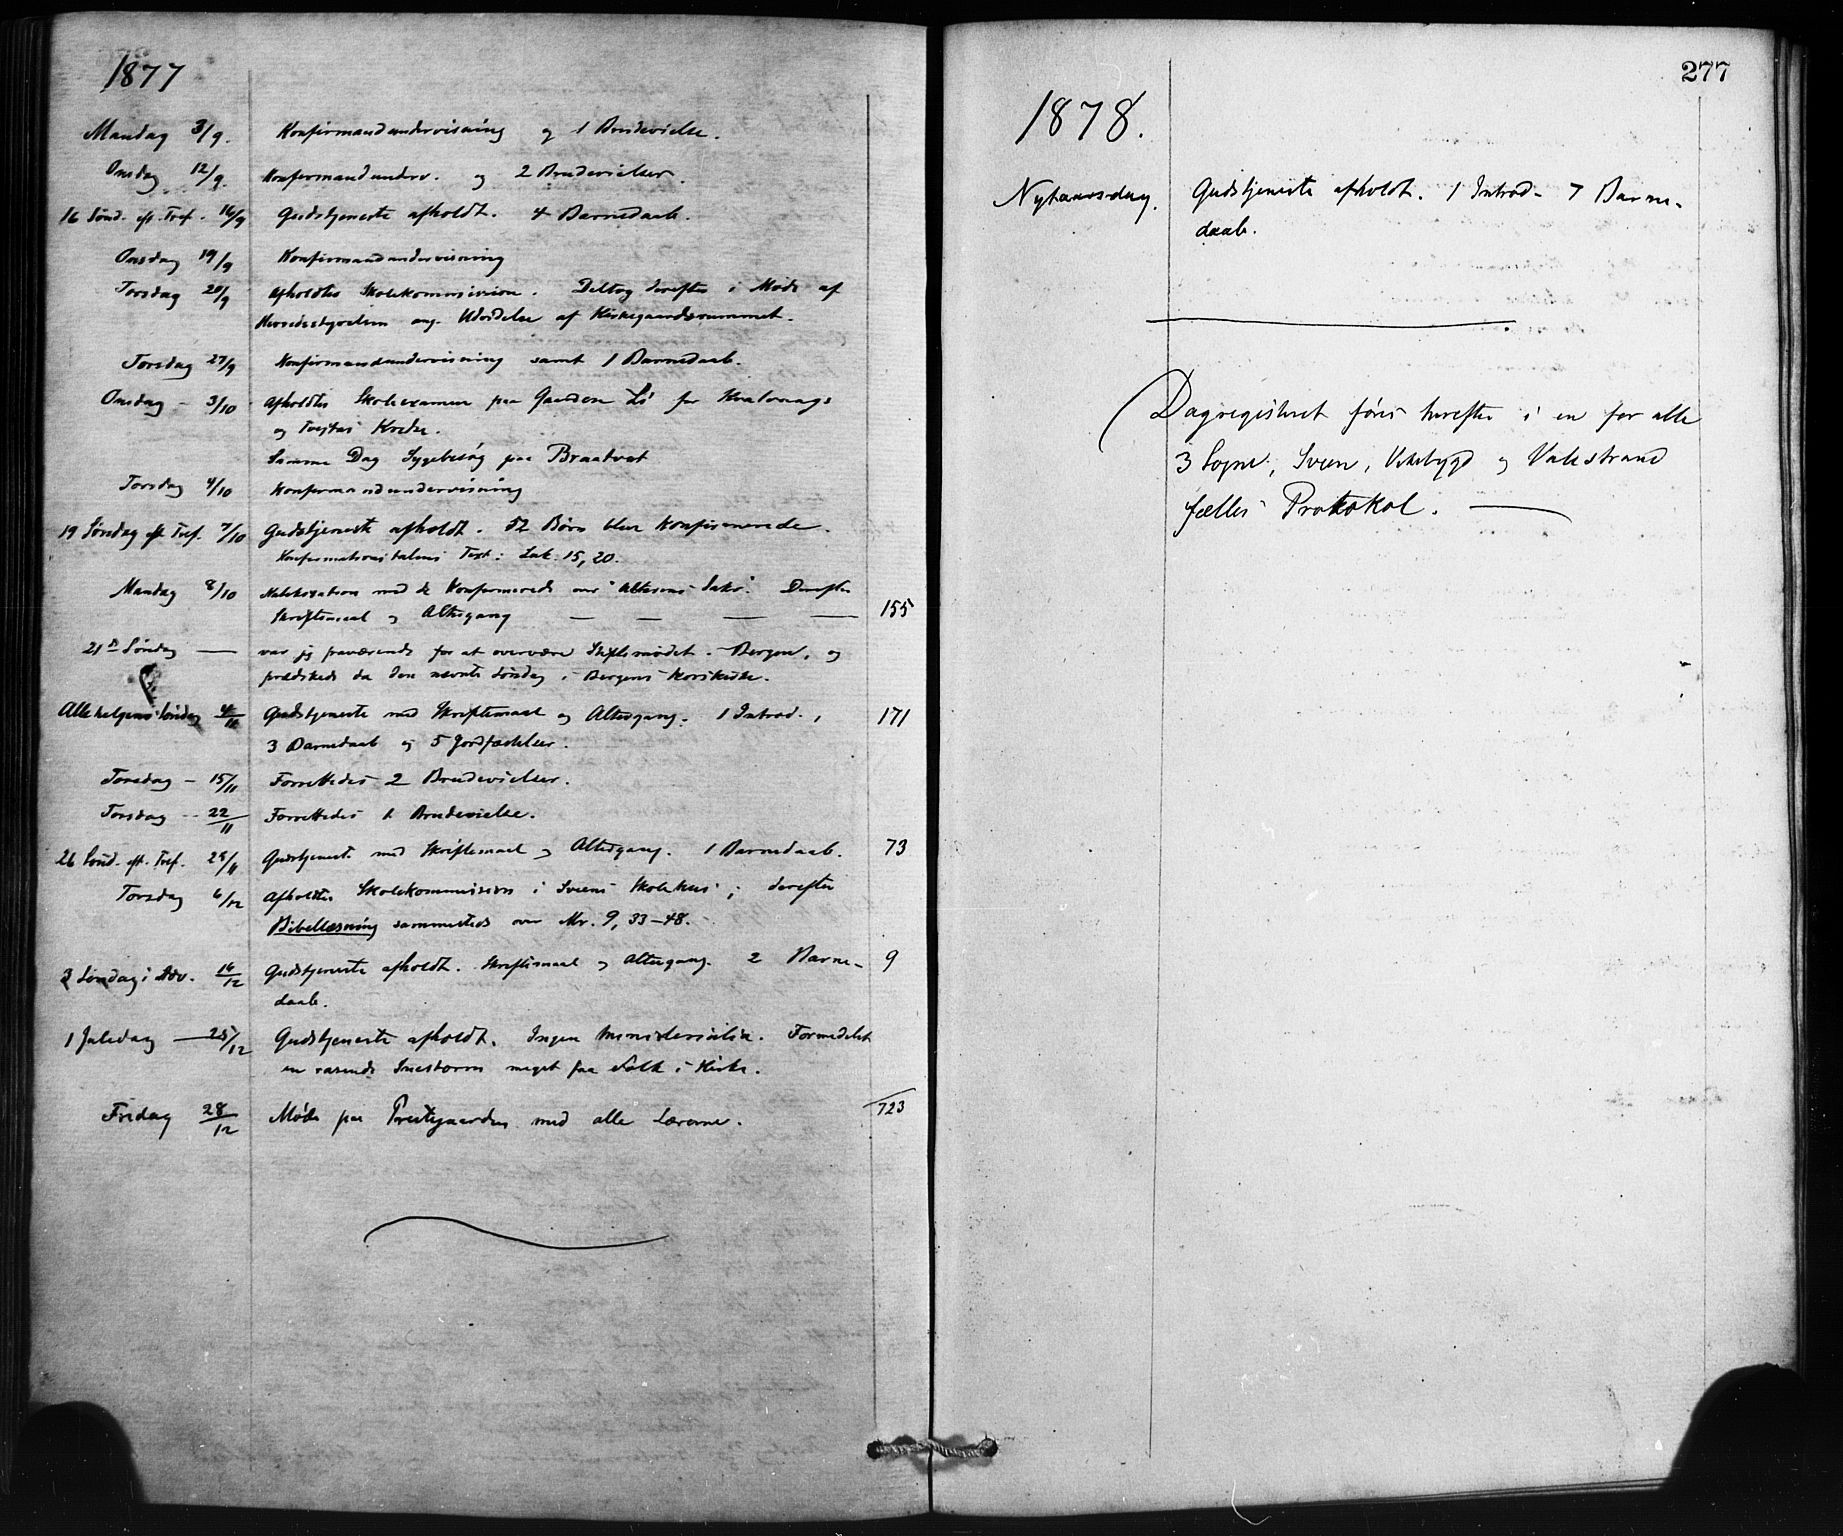 1877
Mandag 3/9. Konfirmandundervisning og 1 Brudevielse.
Onsdag 12/9. Konfirmandunderv. og 2 Brudevielser.
16 Sønd. eft. Tref. 16/9 Gudstjeneste afholdt. 4 Barnedaab.
Onsdag 19/9 Konfirmandundervisning
Torsdag 20/9 Afholdtes Skolekommission. Deltog derefter i Møde af
Herredsstyrelsen ang. Udvidelse af Kirkegaardsrummet.
Torsdag 27/9 Konfirmandundervisning samt 1 Barnedaab.
Onsdag - 3/10 Afholdtes Skoleexamen paa Gaarden Li for Kvalvaags
og Tveitas Kredse.
Samme Dag Sygebesøg paa Braatvet
Torsdag 4/10 Konfirmandundervisning
19 Søndag eft Tref. 7/10 Gudstjeneste afholdt. 52 Børn blev konfirmerede.
Konfirmationstalens Text: Luk. 15, 20.
Mandag 8/10 Katekisation med de Konfirmerede over "Alterens Sakr." Derefter
Skriftemaal og Altergang — — — — 155
21de Søndag — var jeg fraværende for at overvære Stiftsmødet i Bergen, og
prædikede da den nævnte Søndag i Bergens Korskirke.
Allehelgens Søndag 4/11 Gudstjeneste med Skriftemaal og Altergang. 1 Introd., 171
3 Barnedaab og 5 Jordfæstelser.
Torsdag - 15/11 Forrettedes 2 Brudevielser.
Torsdag - 22/11 Forrettedes 1 Brudevielse.
26 Sønd. eft. Tref. 25/11 Gudstjeneste med Skriftemaal og Altergang. 1 Barnedaab. 73
Torsdag 6/12 Afholdtes Skolekommission i Sveens Skolehus; derefter
Bibellæsning sammesteds over Mr. 9, 33-48.
3 Søndag i Adv. 16/12 Gudstjeneste afholdt. Skriftemaal og Altergang. 2 Barne- 9
daab.
1 Juledag — 25/12 Gudstjeneste afholdt. Ingen Ministerialia. Formedelst
en rasende Snestorm meget faa Folk i Kirke.
Fredag 28/12 Møde paa Prestegaarden med alle Lærerne. 723
277
1878.
Nytaarsdag. Gudstjeneste afholdt. 1 Introd - 7 Barne-
daab.
Dagregisteret føres herefter i en for alle
3 Sogne, Sveen, Vikebygd og Valestrand
fælles Protokol. —